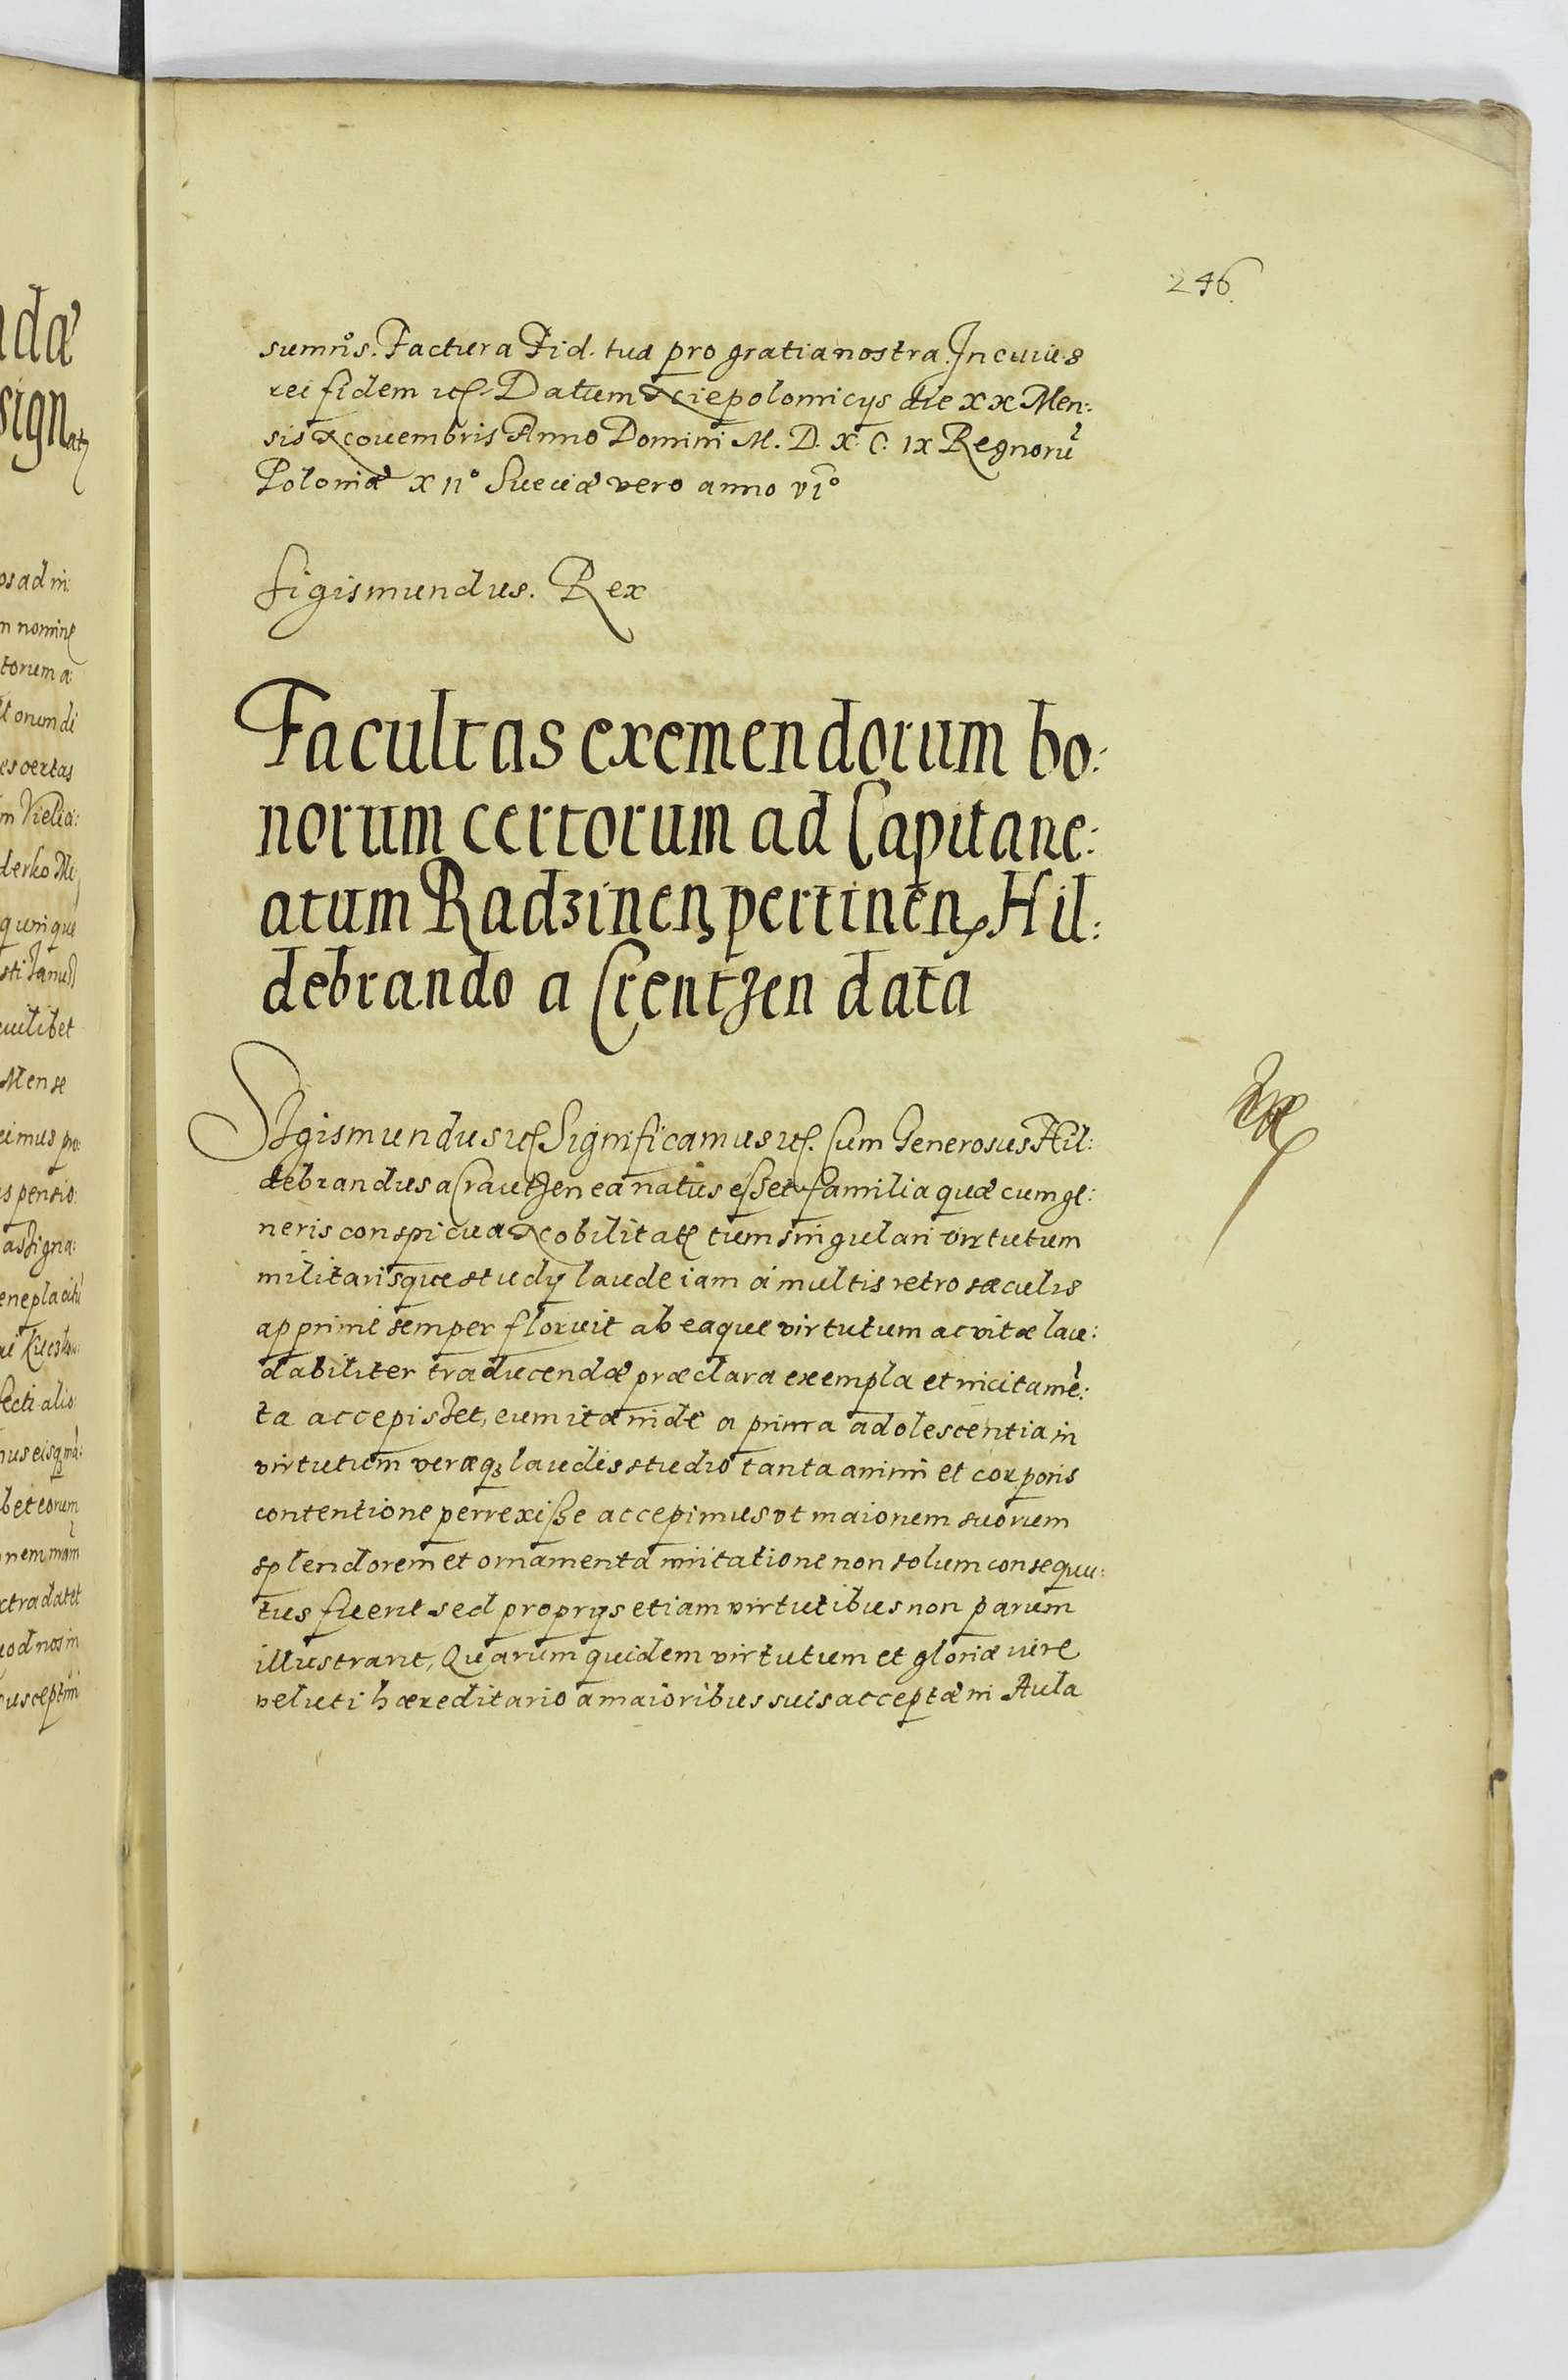 246.
sumn̄s. Factura Fid. tua pro gratia nostra. In cuius
rei fidem etc. Datum Niepolomicys die XX Men:
sis Novembris Anno Domini M. D. X. C. IX Regnorū
Poloniæ XII° Sueciæ vero anno VI°
Sigismundus. Rex
Facultas exemendorum bo:
norum certorum ad Capitane:
atum Radzinen pertinen Hil:
debrando a Crentzen data
Sigismundus etc. Significamus etc. Cum Generosus Hil:
debrandus a Crautzen ea natus esset familia quæ cum ge:
neris conspicua Nobilitate tum singulari virtutum
militarisque studij laude iam a multis retro sæculis
apprime semper floruit ab eaque virtutum ac vitæ lau:
dabiliter traducendæ præclara exempla et incitamē:
ta accepisset, eum ita inde a prima adolescentia in
virtutum veræq3 laudis studio tanta animi et corporis
contentione perrexisse accepimus vt maiorum suorum
splendorem et ornamenta imitatione non solum consequu:
tus fuerit sed proprijs etiam virtutibus non parum
illustrarit, Quarum quidem virtutum et gloriæ iure
veluti hæreditario a maioribus suis acceptæ in Aula
adæ
sign
os ad in:
m nomine
torum a:
um di
es certas
m Vielia:
derko Me
quinque
cuilibet
Mense
eimus pro:
s pensio:
assigna:
eneplaciti
fecti alio
us eisq3
bet eorum
nem
xtradatet
uod nos in